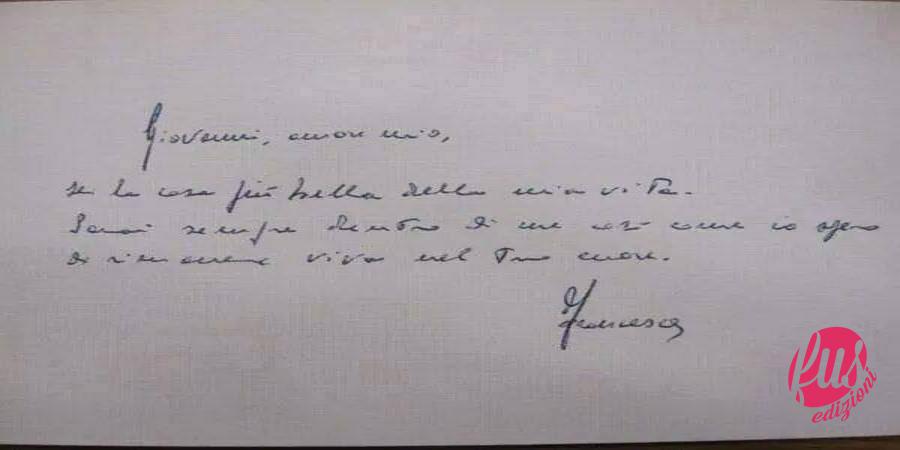 Giovanni, amore mio,
sei la cosa più bella della mia vita.
Sarai sempre dentro di me così come io spero
di rimanere viva nel Tuo cuore.
Francesca
PUS
edizioni